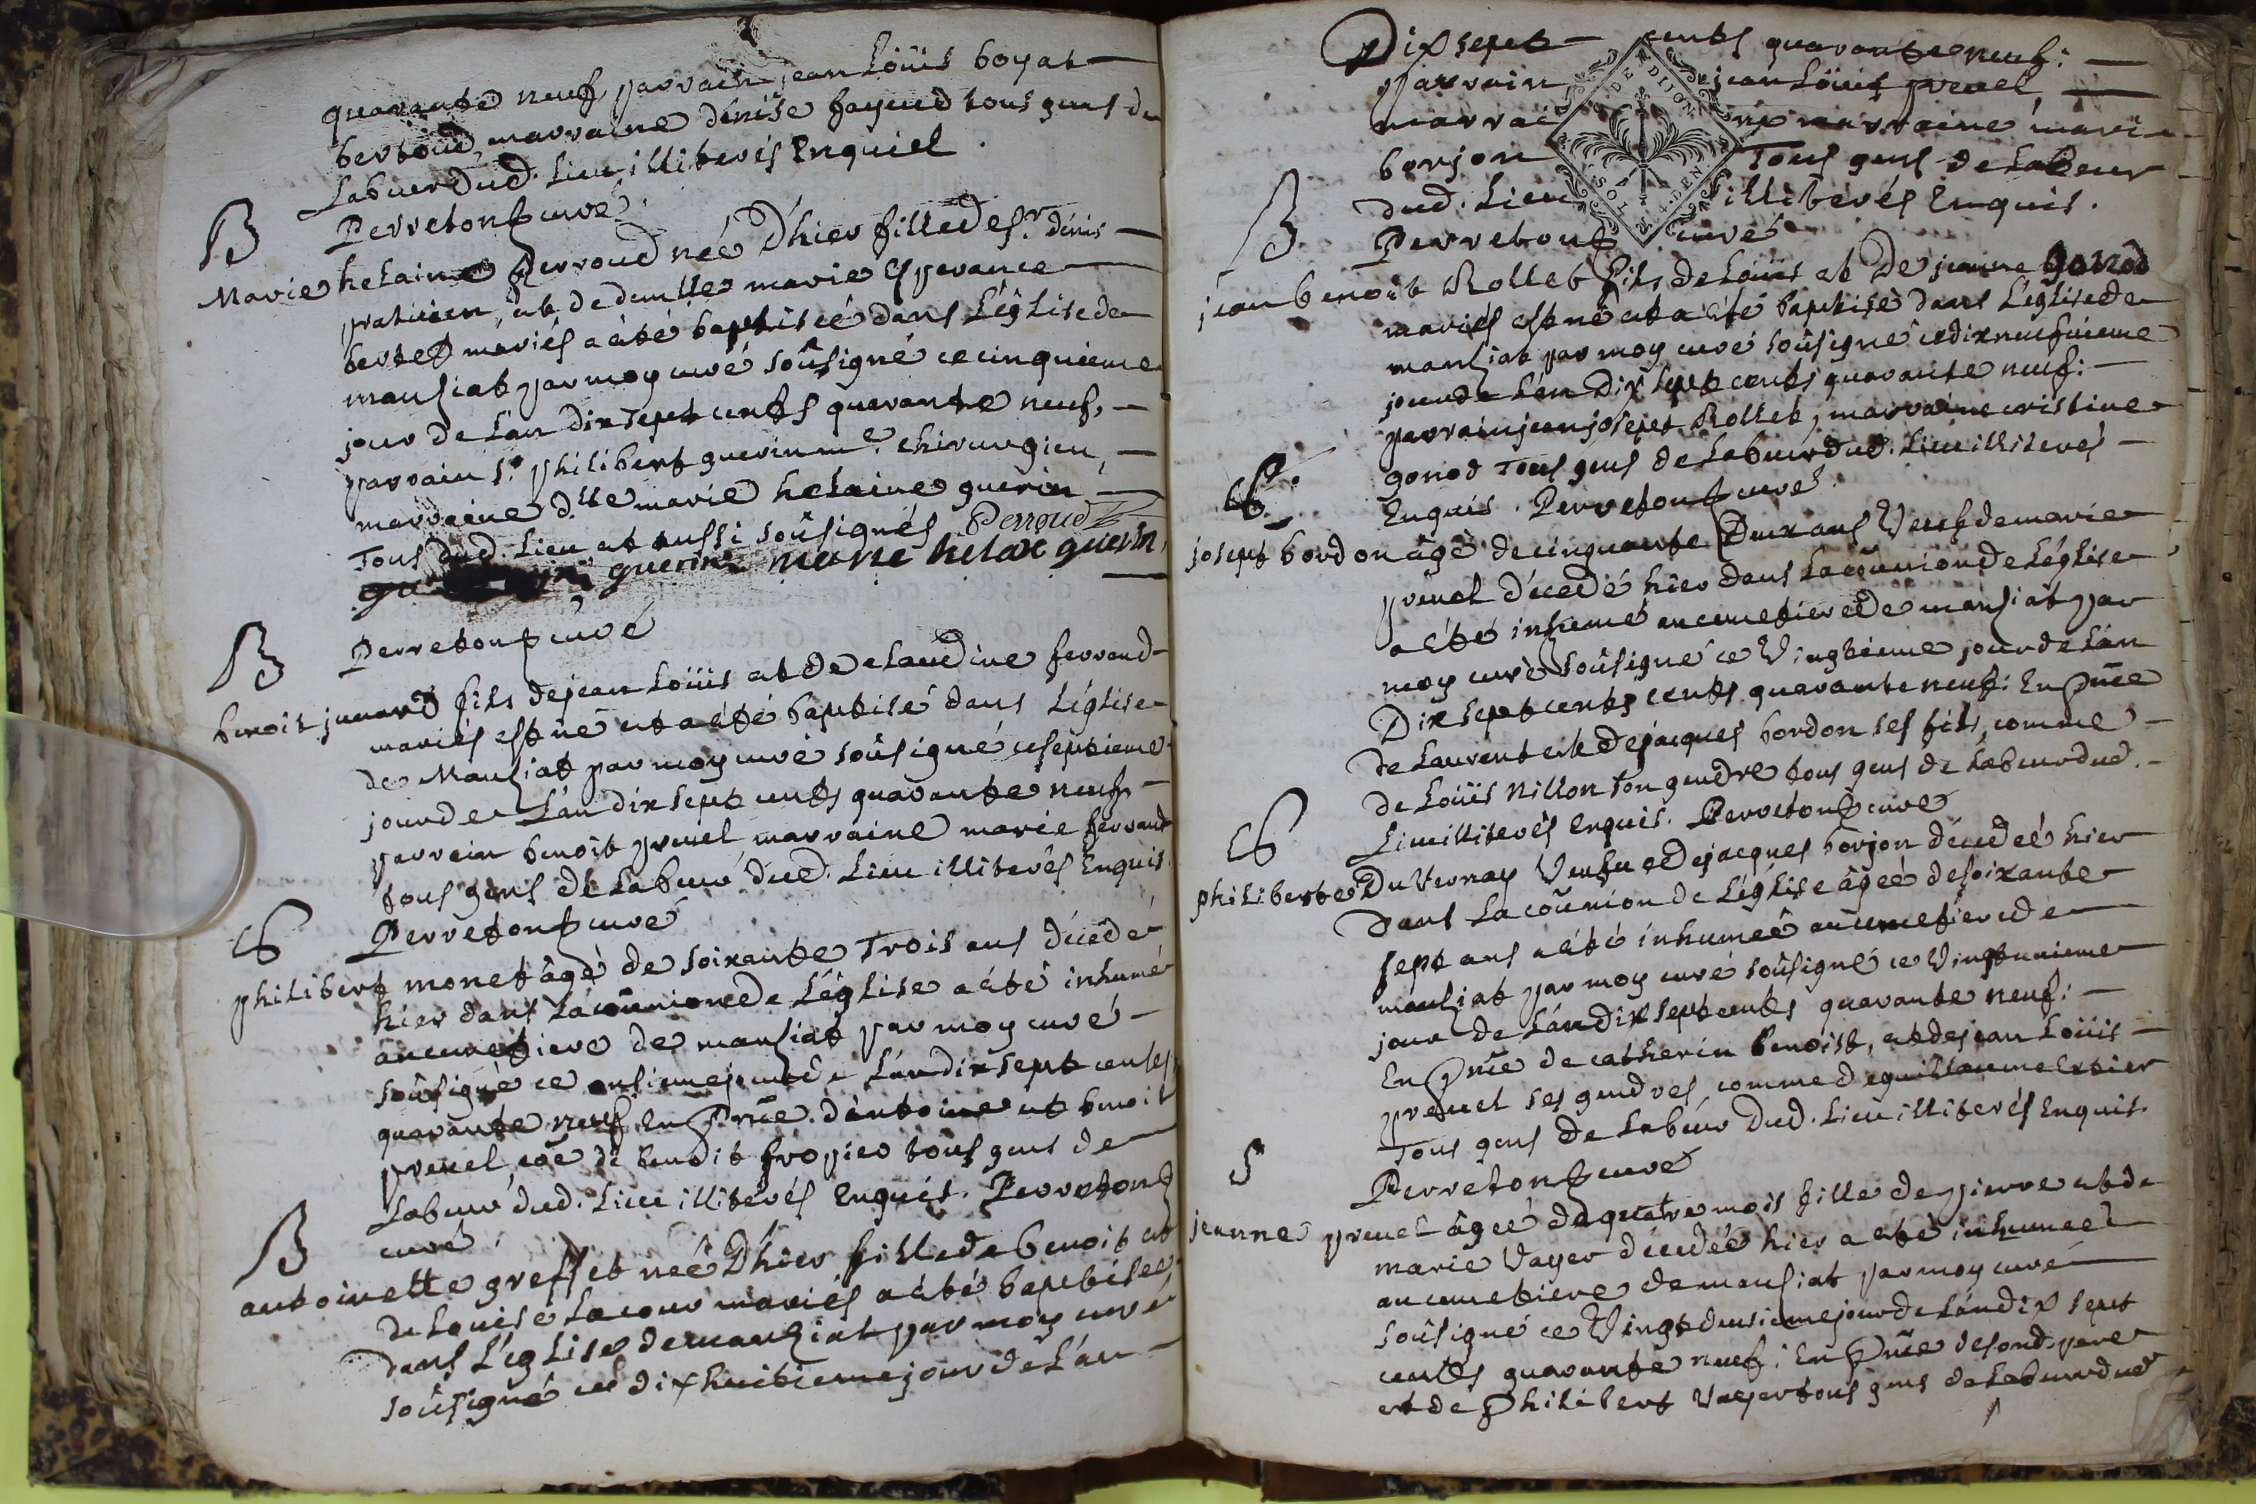 quarante neuf parrain jean Loüis boyat
bertoud, marraine denise fayeud tous gens de
Labeur dud. Lieu illiterés Enquiel.
Perretonf curé.
B
Marie helaine Perroud née D'hier fille de sr. dénis
praticien, at de demlle marie Esperance
bertet mariés a été baptiseé dans L'église de
manziat par moy curé soûsigné ce cinquieme
jour de L'an dix sept cents quarante neuf,
parrain sr. philibert guerin me. chirurgien,
marraine dlle marie helaine guerin
Tous dud. Lieu at aussi soûsignés Perroud
guerin marie helax guerin
Perretonf curé
B
benoit juuard fils dejean Loüis at de claudine ferrand
mariés est né at a été baptisé dans L'église
de Manziat par moy curé soûsigné ce septieme
jour de L'an dix sept cents quarante neuf,
parrain benoît preuel marraine marie ferrand
tous gens de Labeur dud. Lieu illiterés Enquis
Perretonf curé
philibert monet âgé de soixante Trois ans décedé
hier dans La coñunion de L'église a été inhumé
au cemetiere de manziat par moy curé
soûsigné ce onsieme jour de L'an dix sept centes
quarante neuf En Pñce d'antoine at benoit
preuel, cõe de benoit fropier tous gens de
Labeur dud. Lieu illiterés Enquis. Perretonf
curé.
B
antoinette greffet née D'hier fille de benoit at
de Louise Lacour mariés a été baptiseé
dans L'église de manziat par moy curé
soûsigné ce dixhuitieme jour de L'an
Dix sept cents quarante neuf:
parrain jean Loüis preuel,
marrai né marraine marie
borjon Tous gens de Labeur
dud. Lieu illiterés Enquis.
G. DE DIJON
SOL 4. DEN
Perretonf curé
B
jean benoit Rollet fils de Loüis at De jeanne gonod
mariés est né at a été baptisé dans L'église de
manziat par moy curé soûsigné ce dix neufuieme
jour de L'an Dix sept cents quarante neuf:
parrain jean josept Rollet, marraine cristine
gonod Tous gens de Labeur dud. Lieu illiterés
Enquis. Perretonf curé.
josept bordon âgé de cinquante Deux ans Veuf de marie
preuel décedé hier dans La coñunion de L'église
a été inhumé au cemetiere de manziat par
moy curé soûsigné ce Vingtieme jour de L'an
Dix sept cents cents quarante neuf: En Pñce
de Laurent et de jacques bordon ses fils, comme
de Loüis Nillon son gendre tous gens de Labeur dud.
Lieu illiterés Enquis. Perretonf curé
philiberte Du Vernay Veufue de jacques borjon décedeé hier
Dans La coñunion de L'église âgeé de soixante
sept ans a été inhumeé au cemetiere de
manziat par moy curé soûsigné ce Vingtunieme
jour de L'an dix sept cents quarante neuf:
En Pñce de catherin benoist, at de jean Loüis
preuel ses gendres, comme de guillaume Ertier
Tous gens de Labeur Dud. Lieu illiterés Enquis.
Perretonf curé
S
jeanne preuel âgeé de quatre mois fille de pierre at de
marie Vayer décedeé hier a été inhumeé
au cemetiere de manziat par moy curé
soûsigné ce Vingt deusieme jour de L'an dix sept
cents quarante neuf: En Pñce de sond. pere
et de Philibert Vayer tous gens de Labeur dud